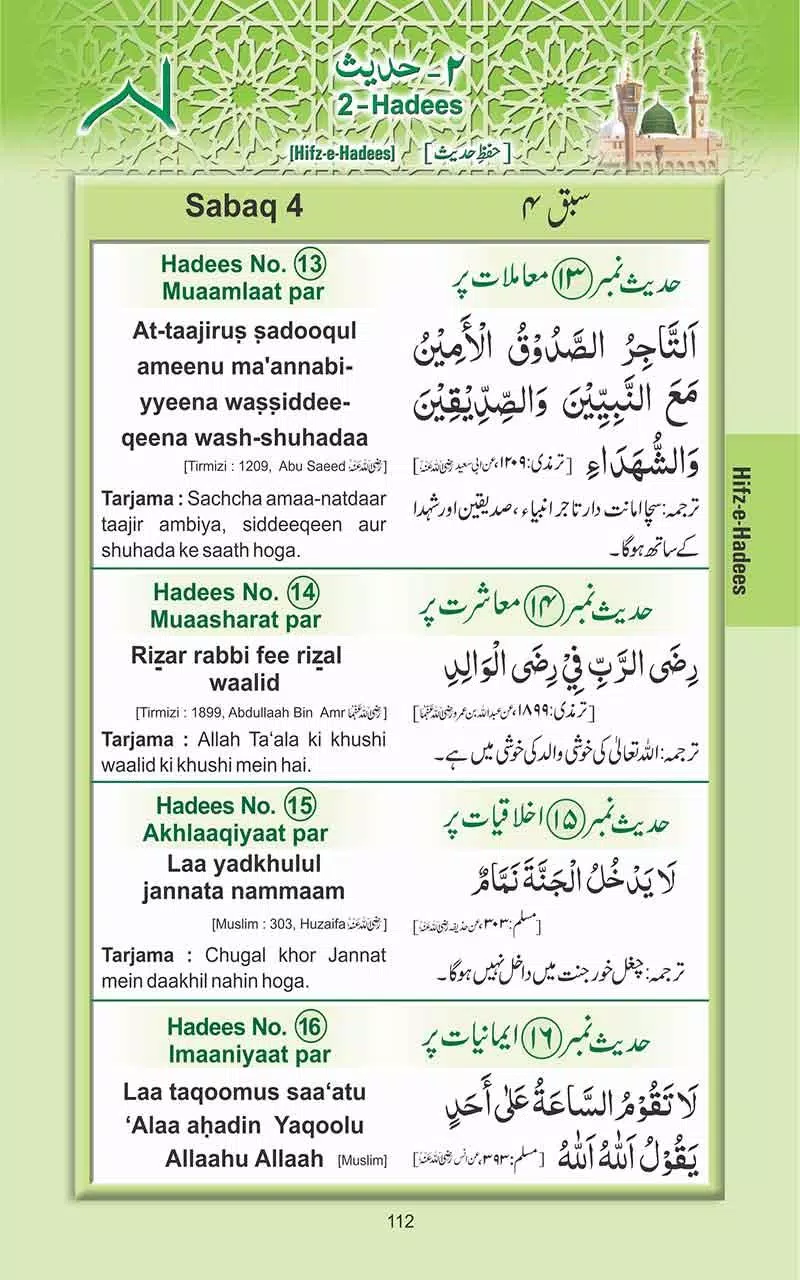 ۲- حدیث
2-Hadees
[Hifz-e-Hadees] [حفظِ حدیث]
Sabaq 4
سبق ۴
Hadees No. 13
Muaamlaat par
At-taajiruṣ ṣadooqul
ameenu ma'annabi-
yyeena waṣṣiddee-
qeena wash-shuhadaa
[Tirmizi : 1209, Abu Saeed رضی اللہ عنہ]
Tarjama : Sachcha amaa-natdaar
taajir ambiya, siddeeqeen aur
shuhada ke saath hoga.
حدیث نمبر ۱۳ معاملات پر
اَلتَّاجِرُ الصَّدُوْقُ الْأَمِيْنُ
مَعَ النَّبِيِّيْنَ وَالصِّدِّيْقِيْنَ
وَالشُّهَدَاءِ [ترمذی: ۱۲۰۹، عن ابی سعید رضی اللہ عنہ]
ترجمہ: سچا امانت دار تاجر انبیاء، صدیقین اور شہدا
کے ساتھ ہوگا۔
Hadees No. 14
Muaasharat par
Riẕar rabbi fee riẕal
waalid
[Tirmizi : 1899, Abdullaah Bin Amr رضی اللہ عنہما]
Tarjama : Allah Ta‘ala ki khushi
waalid ki khushi mein hai.
حدیث نمبر ۱۴ معاشرت پر
رِضَى الرَّبِّ فِيْ رِضَى الْوَالِدِ
[ترمذی: ۱۸۹۹، عن عبداللہ بن عمرو رضی اللہ عنہما]
ترجمہ: اللہ تعالیٰ کی خوشی والد کی خوشی میں ہے۔
Hadees No. 15
Akhlaaqiyaat par
Laa yadkhulul
jannata nammaam
[Muslim : 303, Huzaifa رضی اللہ عنہ]
Tarjama : Chugal khor Jannat
mein daakhil nahin hoga.
حدیث نمبر ۱۵ اخلاقیات پر
لَا يَدْخُلُ الْجَنَّةَ نَمَّامٌ
[مسلم: ۳۰۳، عن حذیفہ رضی اللہ عنہ]
ترجمہ: چغل خور جنت میں داخل نہیں ہوگا۔
Hadees No. 16
Imaaniyaat par
Laa taqoomus saa‘atu
‘Alaa aḥadin Yaqoolu
Allaahu Allaah [Muslim]
حدیث نمبر ۱۶ ایمانیات پر
لَا تَقُوْمُ السَّاعَةُ عَلٰى أَحَدٍ
يَقُوْلُ اَللّٰهُ اَللّٰهُ [مسلم: ۳۹۳، عن انس رضی اللہ عنہ]
Hifz-e-Hadees
112